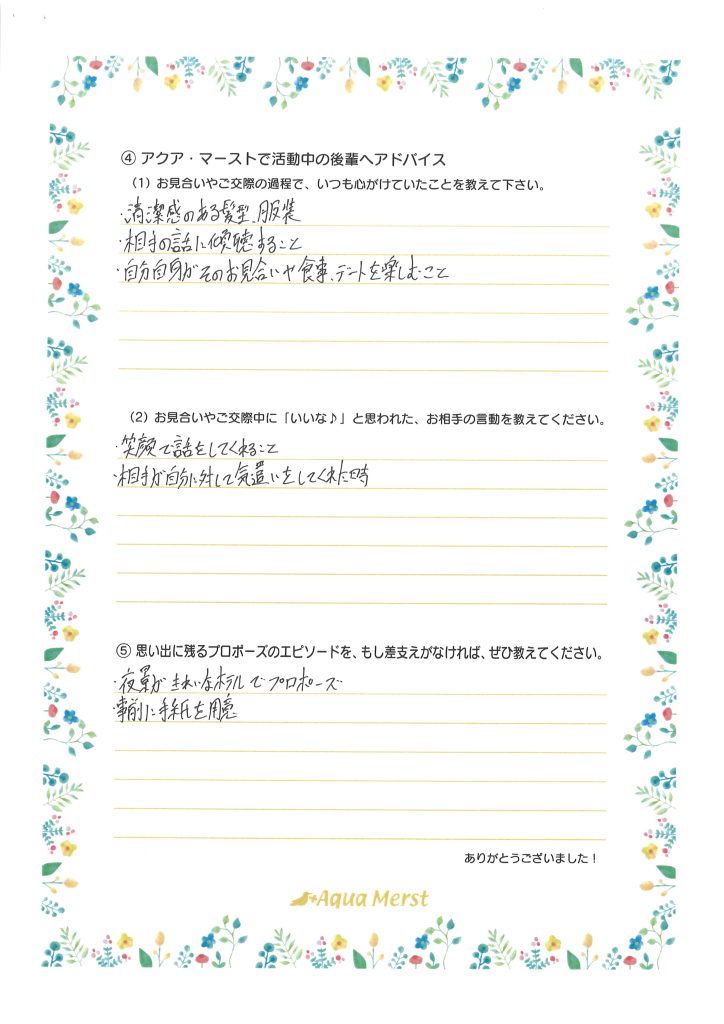 ④ アクア・マーストで活動中の後輩へアドバイス
（1）お見合いやご交際の過程で、いつも心がけていたことを教えて下さい。
・清潔感のある髪型、服装
・相手の話に傾聴すること
・自分自身がそのお見合いや食事、デートを楽しむこと
（2）お見合いやご交際中に「いいな♪」と思われた、お相手の言動を教えてください。
・笑顔で話をしてくれること
・相手が自分に対して気遣いをしてくれた時
⑤ 思い出に残るプロポーズのエピソードを、もし差支えがなければ、ぜひ教えてください。
・夜景がきれいなホテルでプロポーズ
・事前に手紙を用意
ありがとうございました！
Aqua Merst